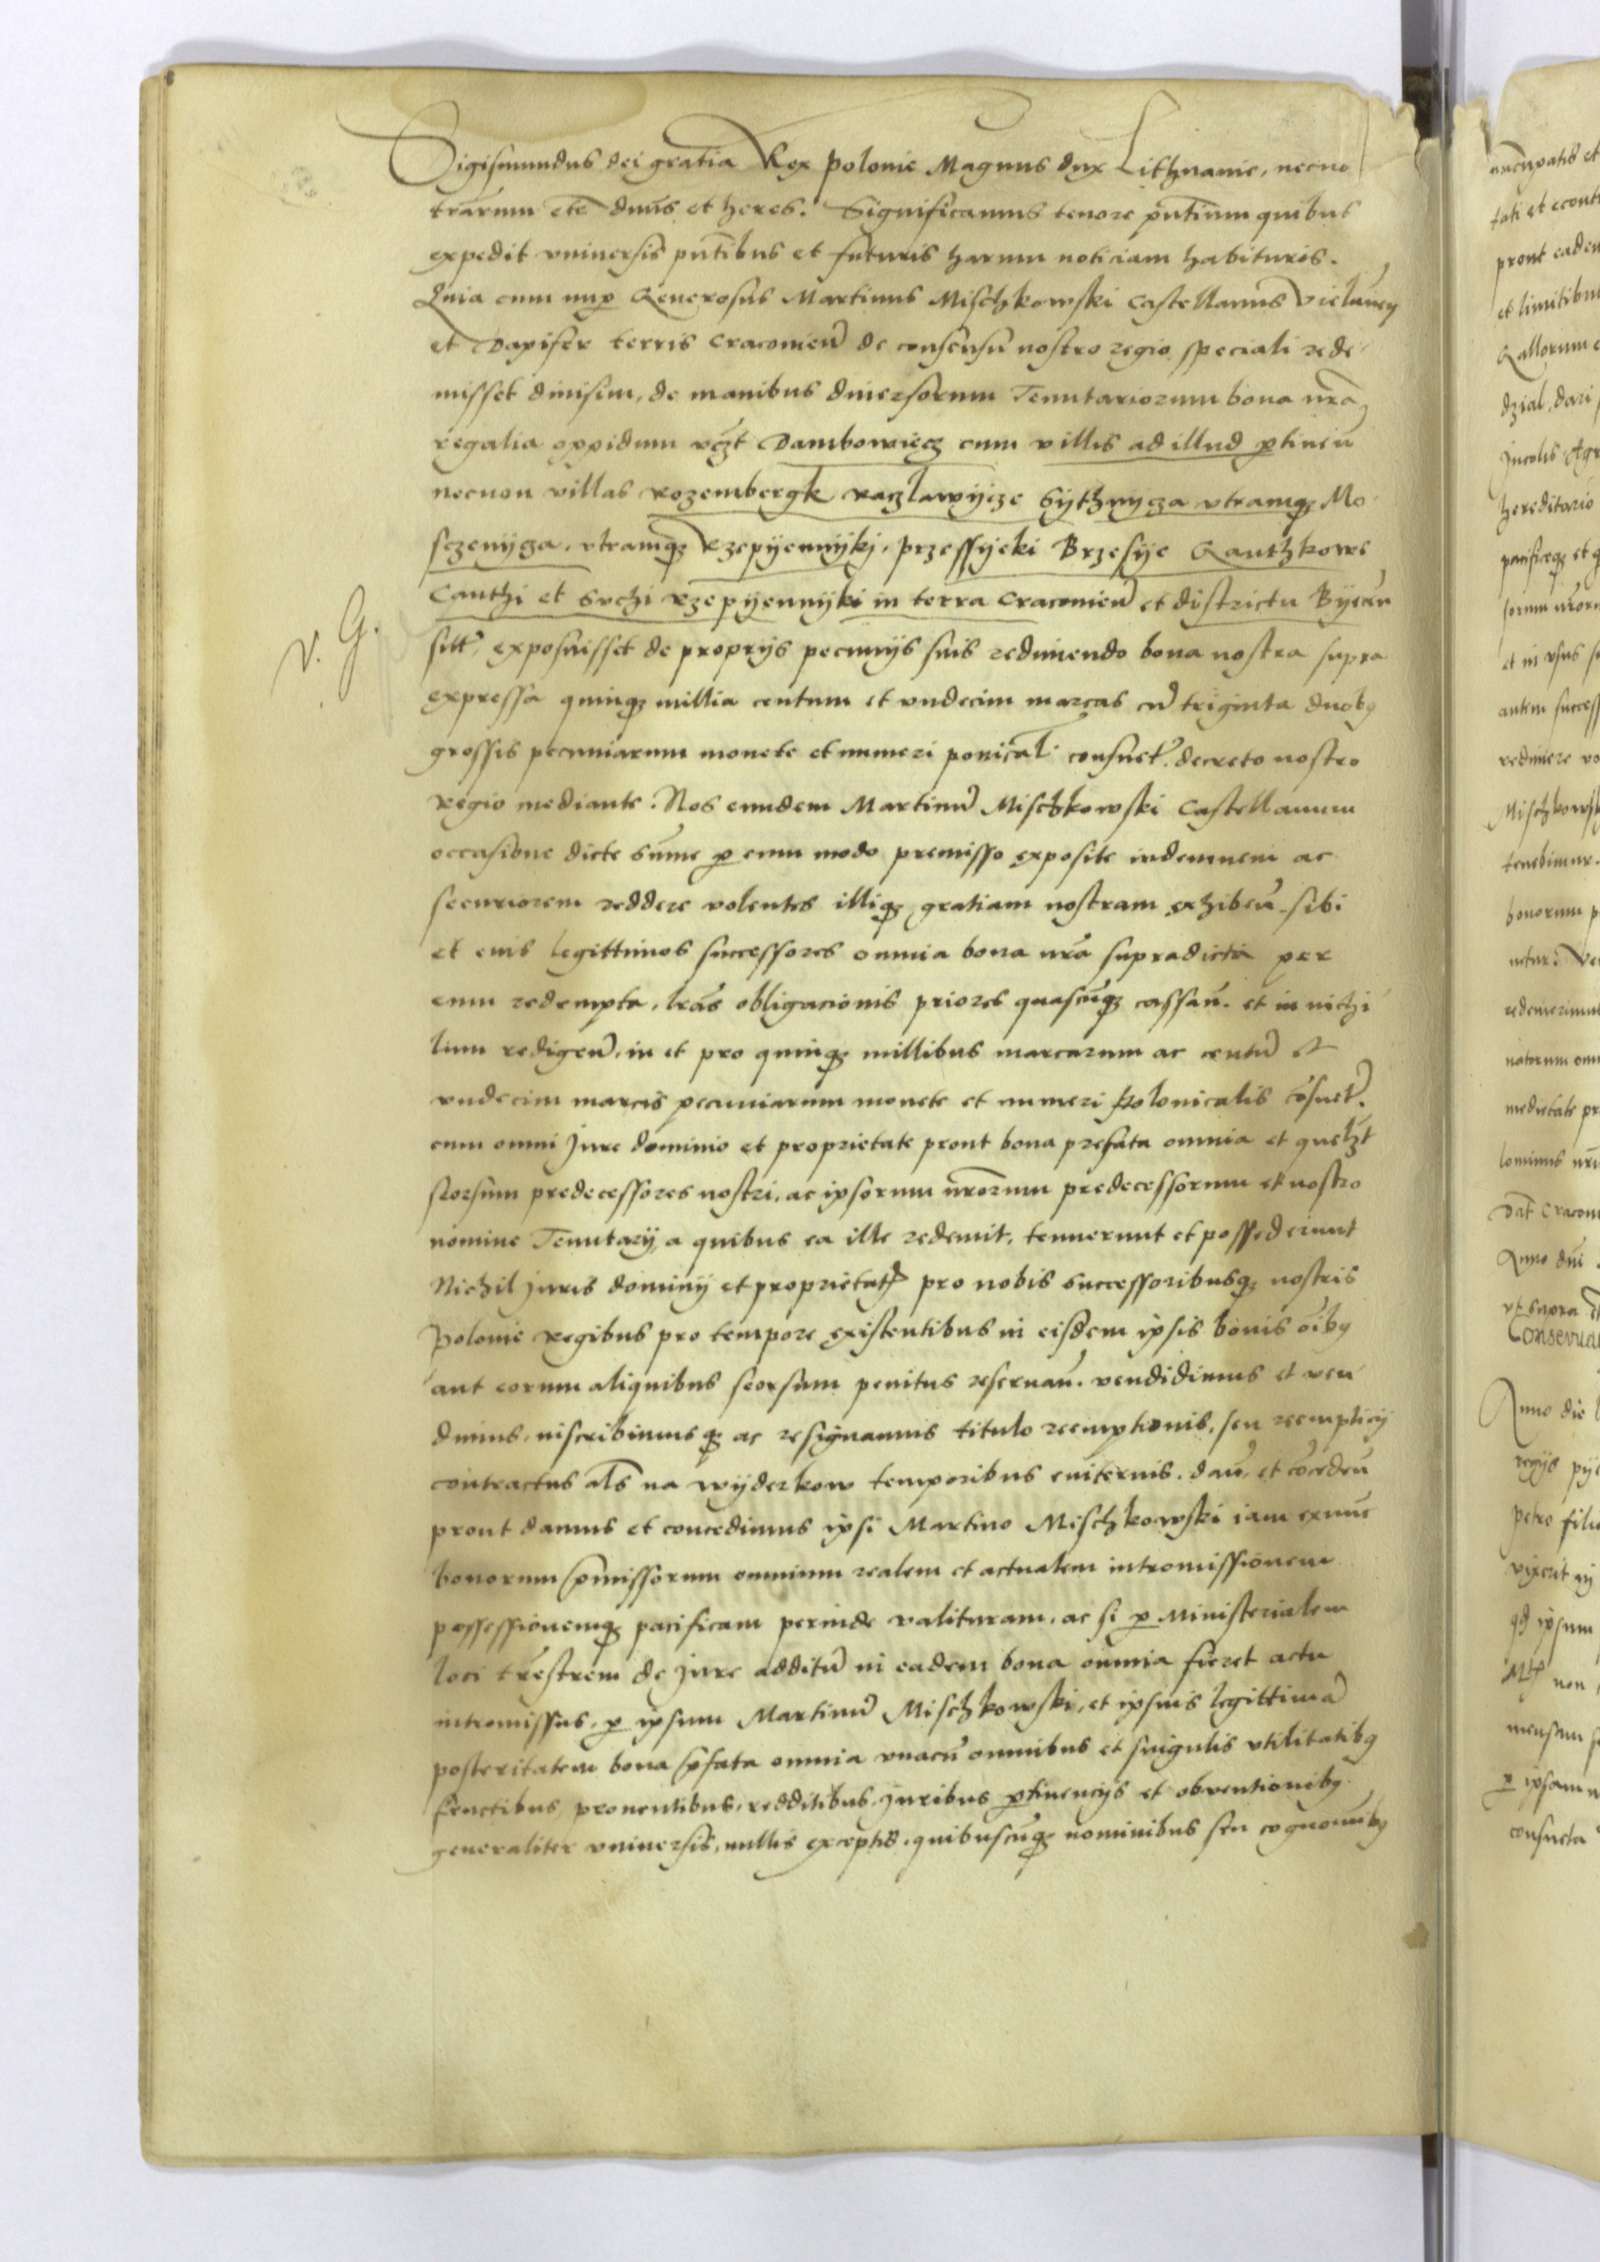 Sigismundus dei gratia Rex polonie Magnus dux Lithuanie, necno
trarum etc dnus et heres. Significamus tenore pntium quibus
expedit vniuersis pntibus et futuris harum noticiam habituris.
Quia cum nup Generosus Martinus Mischkowski Castellanus Vielunen
et Dapifer terris Cracouien de consensu nostro regio speciali rede
misset diuisim, de manibus diuersorum Tenutariorum bona nra
regalia oppidum vczt Dambowiecz cum villis ad illud ptinen
necnon villas Rozembergk Raczlawijcze Sijthnijcza vtramq Mo
sczenijcza, vtramq Rzepijennijkj, przessijeki Brzesije Ganthkowe
Canthi et Suchi Rzepijennijki in terra Cracouien et districtu Bijecen
sitt, exposuisset de proprijs pecunijs suis redimendo bona nostra supra
expressa quinq millia centum et vndecim marcas cu triginta duobq
grossis pecuniarum monete et numeri polnical consuet, decreto nostro
Regio mediante. Nos eundem Martinu Mischkowski Castellanum
occasione dicte sume p eum modo premisso exposite indemnem ac
securiorem reddere volentes illiq gratiam nostram exhiben. sibi
et eius legittimos successores omnia bona nra supradicta per
eum redempta, lras obligacionis priores quascuq cassan. et in nichi
lum redigen, in et pro quinq millibus marcarum ac centu et
vndecim marcis pecuniarum monete et numeri polonicalis cosuet.
cum omni Jure dominio et proprietate prout bona prefata omnia et quelzt
seorsum predecessores nostri, ac ipsorum nrorum predecessorum et nostro
nomine Tenutarij a quibus ea ille redemit, tenuerunt et possederunt
Nichil Juris dominij et proprietat pro nobis successoribusq nostris
Polonie Regibus pro tempore existentibus in eisdem ipsis bonis oibq
aut eorum aliquibus seorsum penitus reseruan. vendidimus et ven
dimus, inscribimusq ac resignamus titulo reemptionis, seu reempticij
contractus als na wijderkow temporibus euiternis. dan et coceden
prout damus et concedimus ipsi Martino Mischkowski iam exnunc
bonorum pmissorum omnium realem et actualem intromissionem
possessionemq pacificam perinde valituram, ac si p Ministerialem
loci trestrem de Jure additu in eadem bona omnia fieret actu
intromissus, p ipsum Martinu Mischkowski, et ipsius legittima
posteritatem bona pfata omnia vnacu omnibus et singulis vtilitatibq
fructibus prouentibus, redditibus, Juribus ptinencijs et obventionibq
generaliter vniuersis, nullis exceptis, quibuscuq nominibus seu cognomibq
v. G.